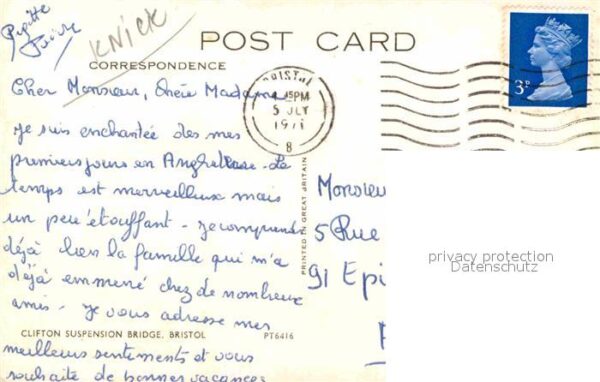 KNICK
POST CARD
CORRESPONDENCE
Cher Monsieur, Chère Madame
Je suis enchantée des mes
premiers jours en Anghleterre. Le
temps est merveilleux mais
un peu étouffant - Je comprends
déjà bien la famille qui m'a
déjà emmené chez de nombreux
amis - Je vous adresse mes
CLIFTON SUSPENSION BRIDGE, BRISTOL PT6416
meilleurs sentiments et vous
souhaite de bonnes vacances
BRISTOL
4 45PM
5 JLY
1971
8
3P
PRINTED IN GREAT BRITAIN
Monsieur
5 Rue
91 Epi
privacy protection
Datenschutz